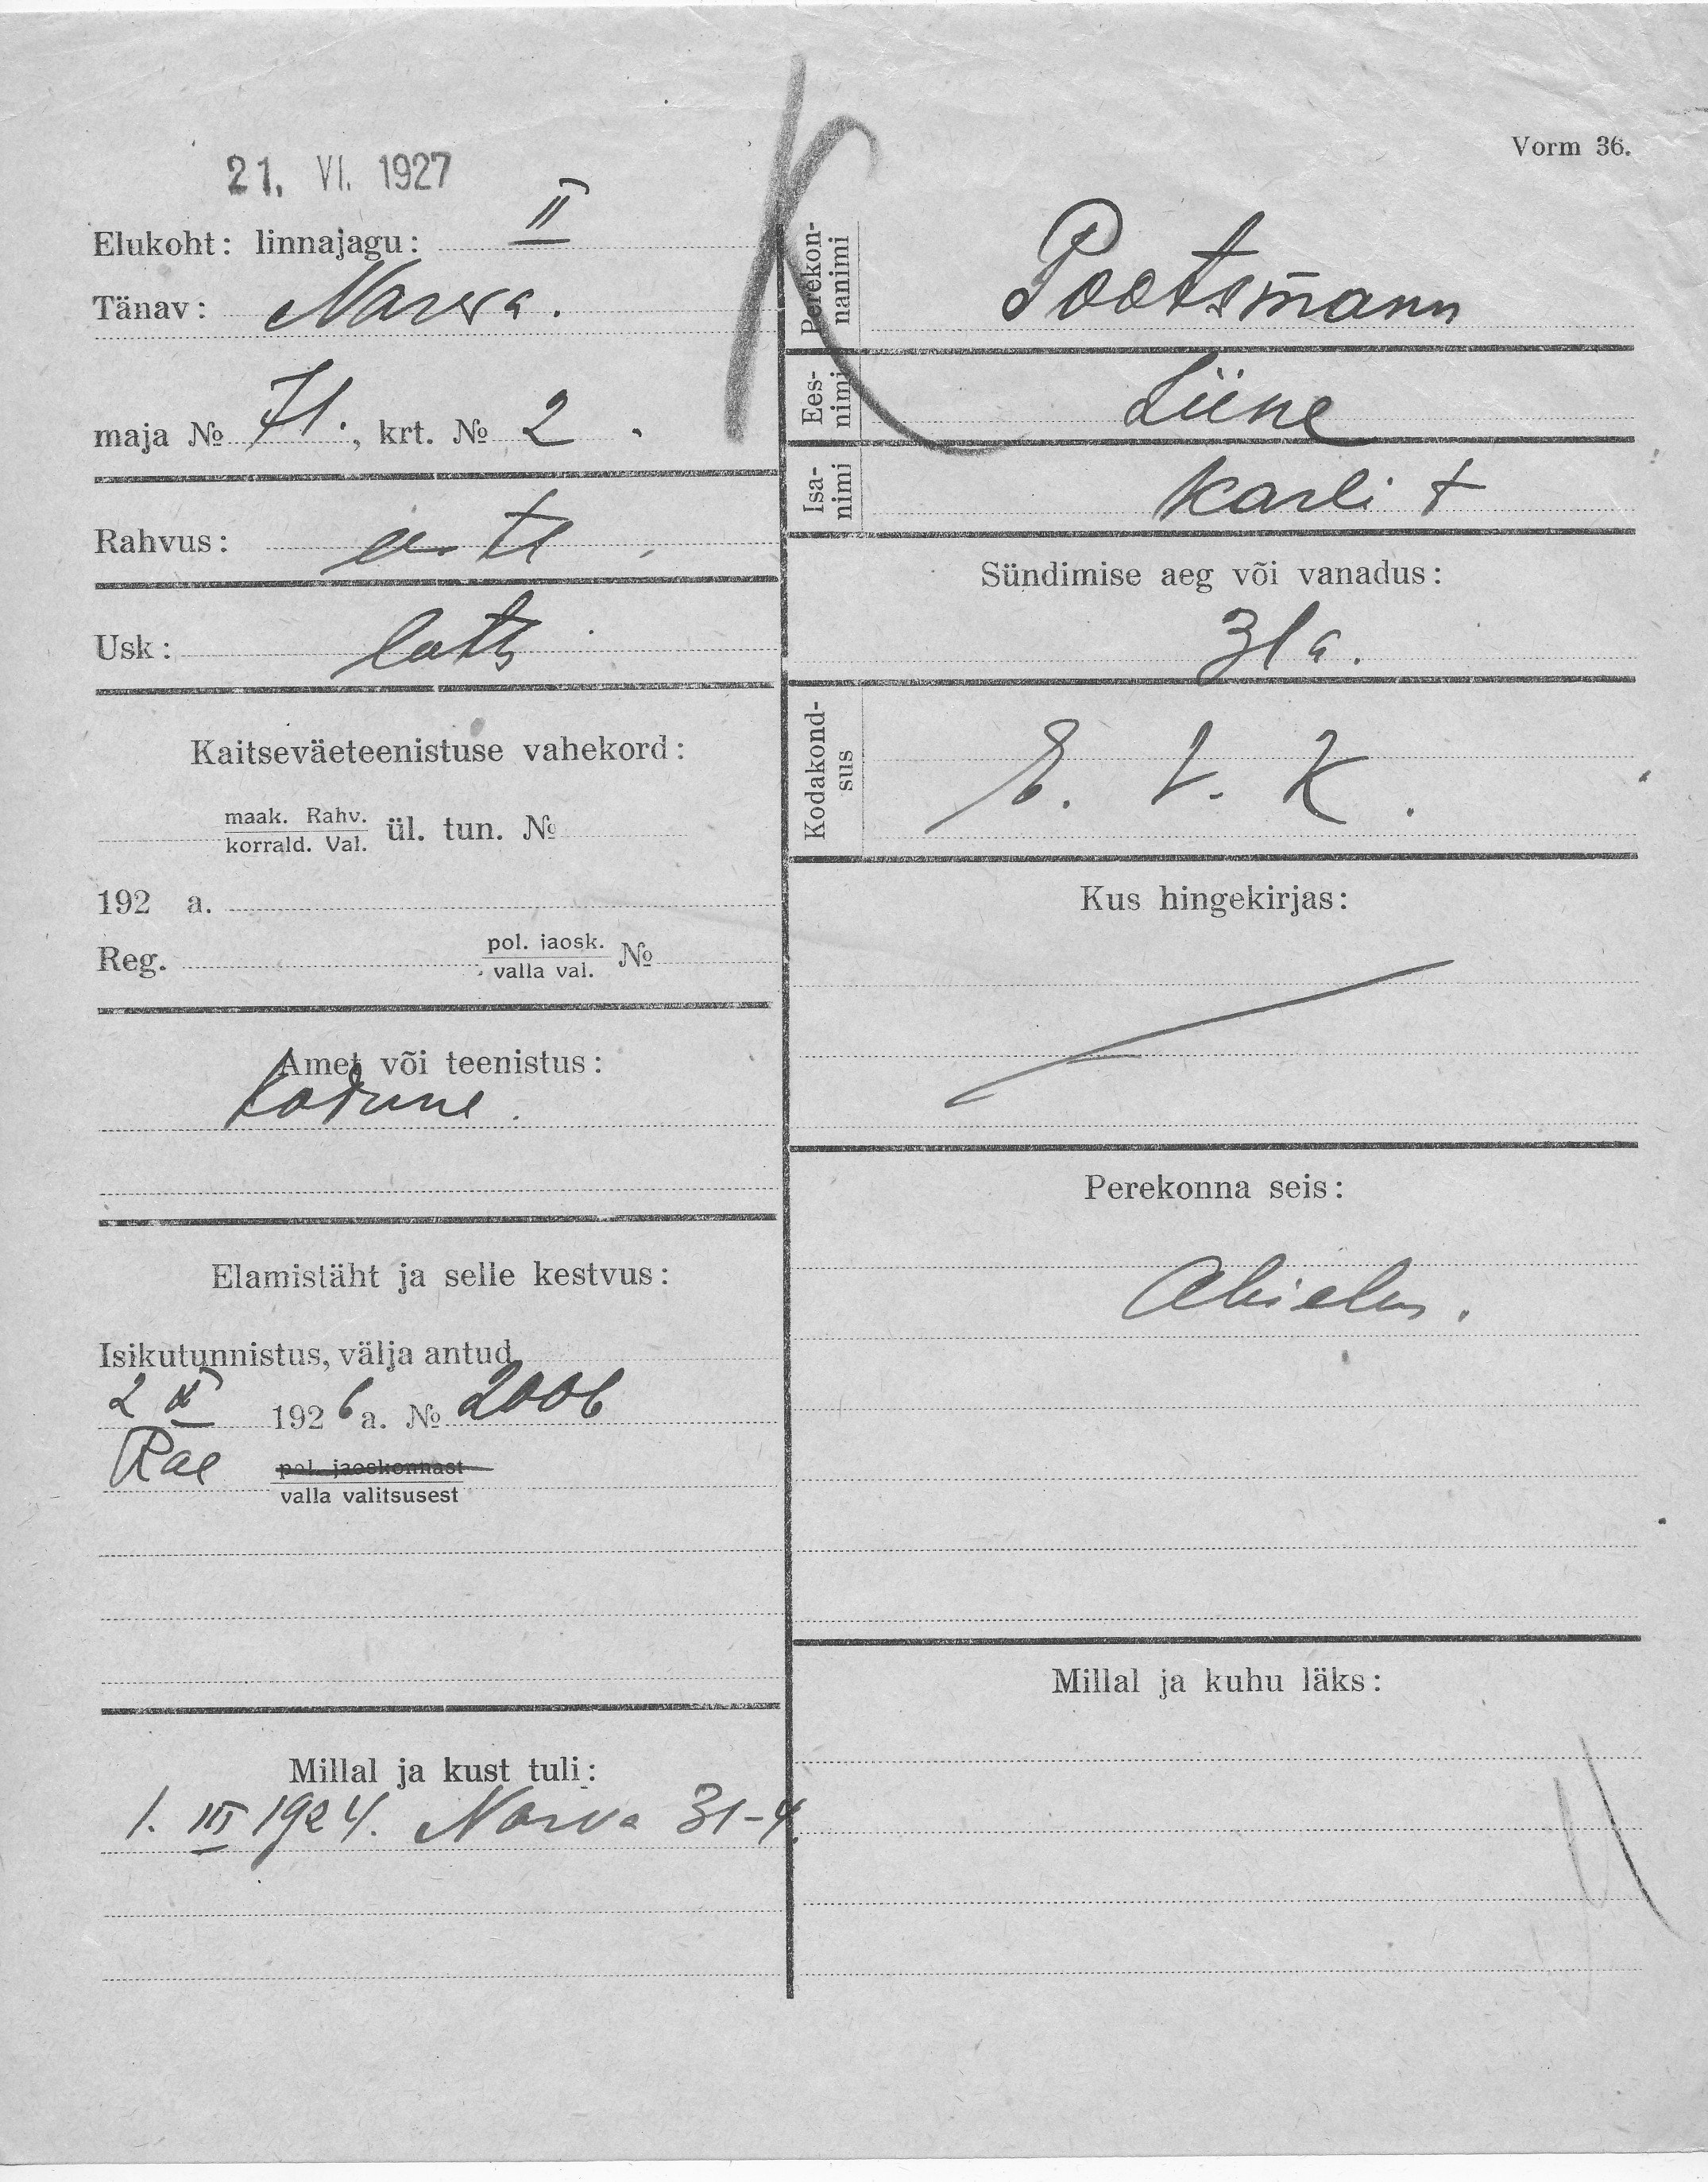 Vorm 36.
21. VI. 1927
Elukoht: linnajagu: II
Tänav: Narva.
maja № 71., krt. № 2.
Rahvus: eesti
Usk: luth
Kaitseväeteenistuse vahekord:
maak. Rahv.
korrald. Val. ül. tun. №
192 a.
Reg. pol. jaosk.
valla val. №
Amet või teenistus:
kodune.
Elamistäht ja selle kestvus:
Isikutunnistus, välja antud
2 X 1926 a. № 2006
Rae pol. jaoskonnast
valla valitsusest
Millal ja kust tuli:
1. III 1924. Narva 31-4.
K
Perekon-
nanimi
Pootsmann
Ees-
nimi
Liine
Isa-
nimi
Karli +
Sündimise aeg või vanadus:
31 a.
Kodakond-
sus
E. V. K.
Kus hingekirjas:
Perekonna seis:
Abielus.
Millal ja kuhu läks: